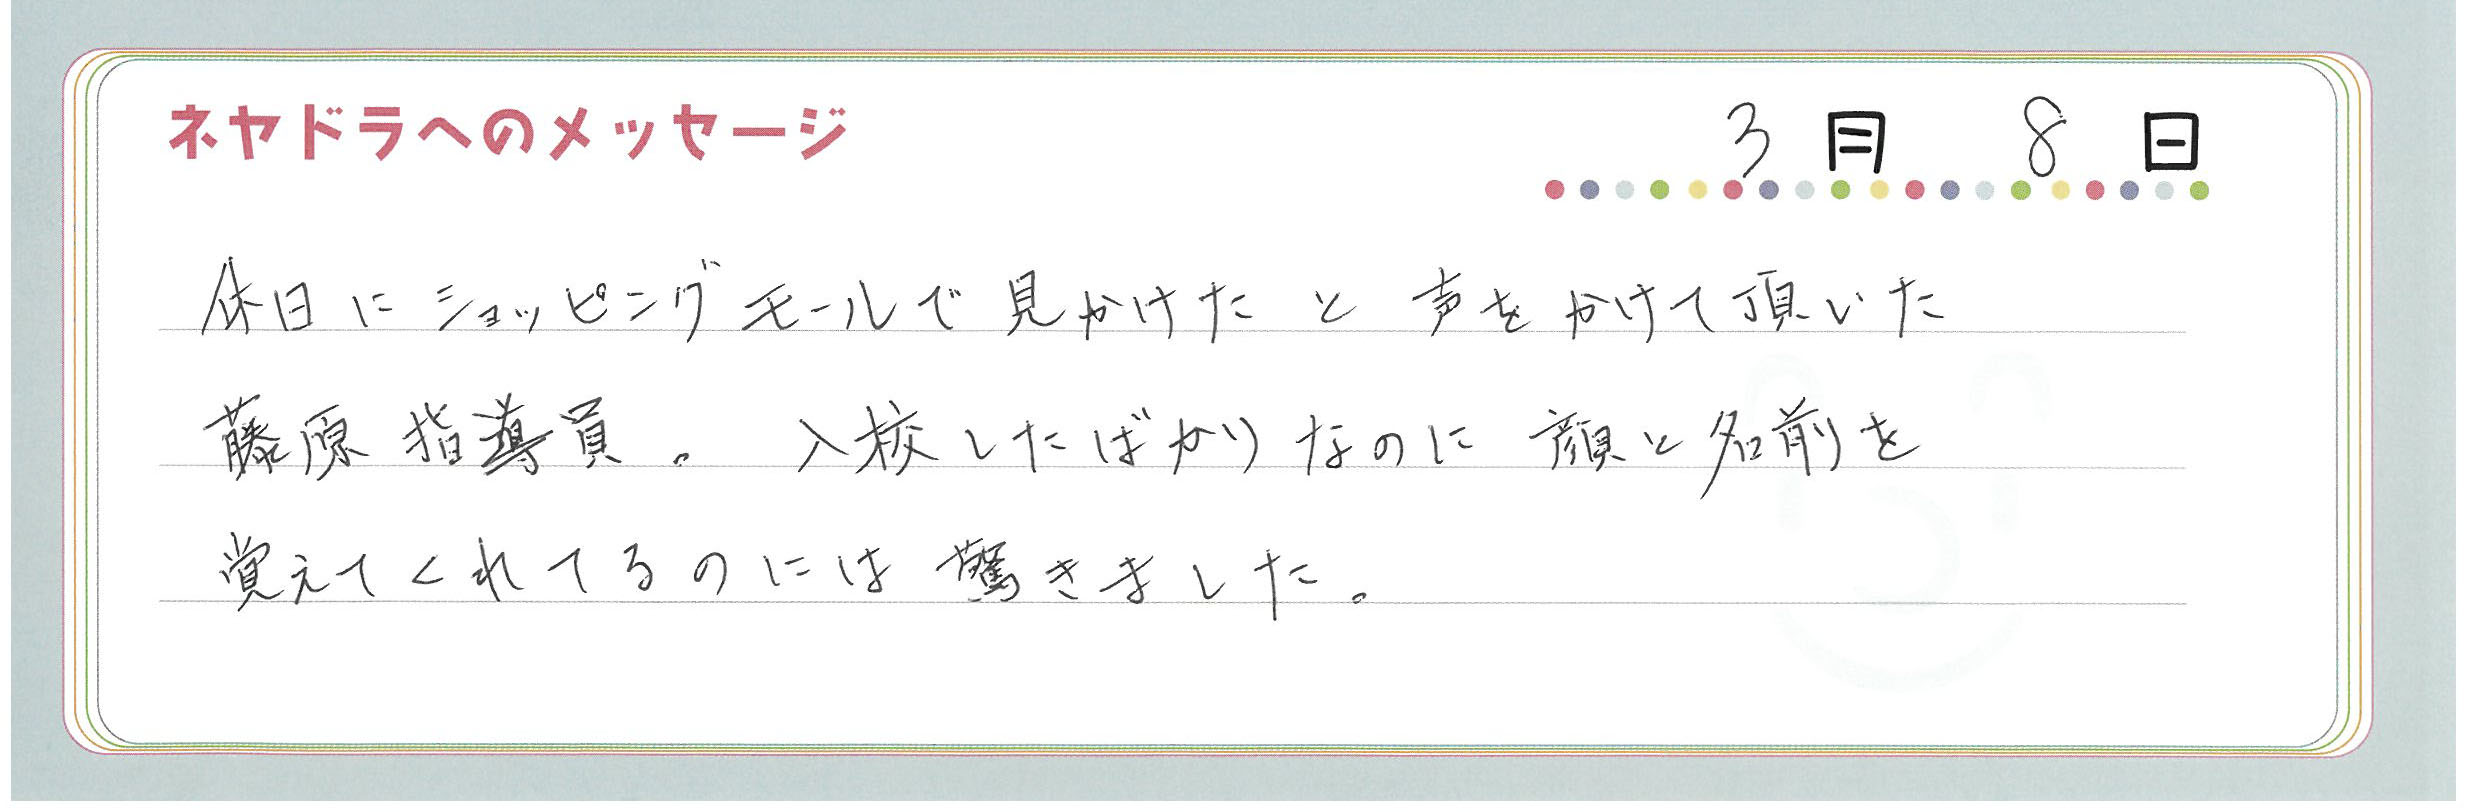 ネヤドラへのメッセージ
3月 8日
休日にショッピングモールで見かけたと声をかけて頂いた
藤原指導員。入校したばかりなのに顔と名前を
覚えてくれてるのには驚きました。